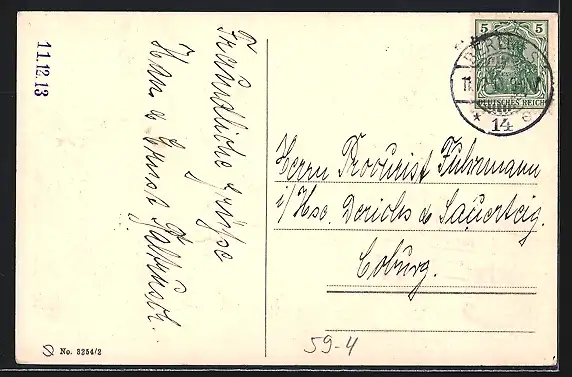 11.12.13
Freundliche Grüsse
Hans & Ernst
Herrn Prokurist Fuhrmann
i/Hse. Derichs & Sauerteig.
Coburg.
5 5
DEUTSCHES REICH
BERLIN
11
* 14
59-4
No. 3254/2